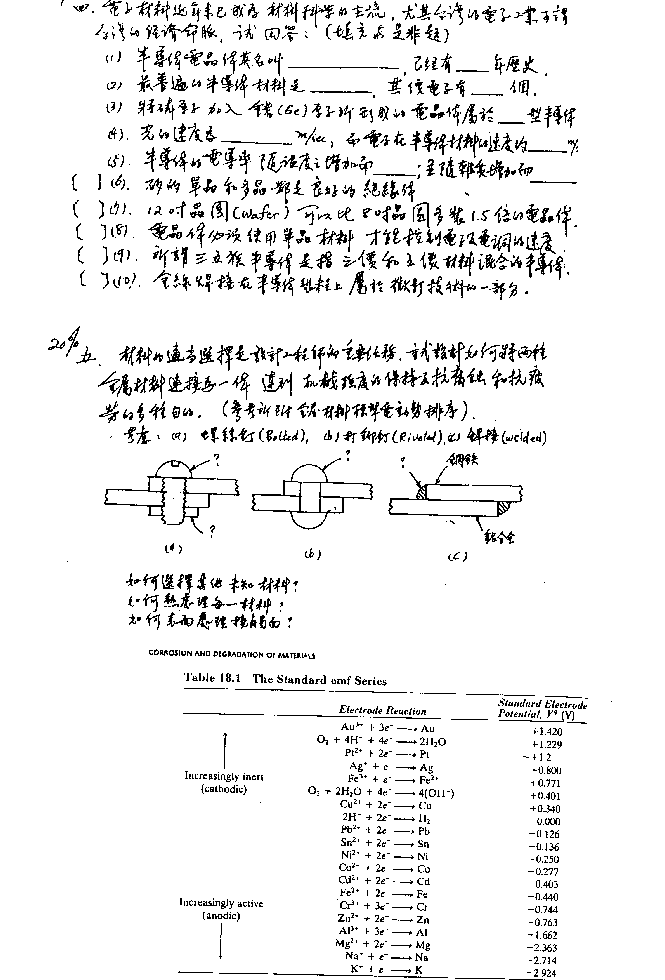 四. 電子材料近年來已成為材料科學的主流, 尤其台灣的電子工業可謂
台灣的經濟命脈, 試回答: (填充及是非題)
(1) 半導體電晶體英名叫________, 已經有____年歷史.
(2) 最普遍的半導体材料是________, 其價電子有____個.
(3) 將磷原子加入鍺(Ge)原子所形成的電晶体屬於____型半導体
(4). 光的速度為________m/sec, 而電子在半導体材料的速度約____
(5). 半導体的電導率隨溫度之增加而____; 且隨雜質增加而____
[ ](6). 矽的單晶和多晶都是良好的絕緣体
[ ](7). 12吋晶圓(wafer)可以比8吋晶圓多裝1.5倍的電晶体.
[ ](8). 電晶体必須使用單晶材料才能控制電子及電洞的速度.
[ ](9). 所謂三五族半導体是指三價和五價材料混合的半導体.
[ ](10). 金線焊接在半導体製程上屬於微封技術的一部分.
20% 五. 材料的適當選擇是設計工程師的主要任務. 試設計如何將兩種
金屬材料連接為一体 達到机械強度的保持及抗腐蝕和抗疲
勞的多種目的. (參考所附金屬材料標準電動勢排序).
考慮: (a) 螺絲釘(Bolted), (b) 打鉚釘(Rivated), (c) 銲接(welded)
? ? ? 鋼鐵
?
鋁合金
(a) (b) (c)
如何選擇其他未知材料?
如何熱處理每一材料?
如何表面處理接觸面?
CORROSION AND DEGRADATION OF MATERIALS
Table 18.1 The Standard emf Series
Electrode Reaction Standard Electrode Potential, V⁰ (V)
Au³⁺ + 3e⁻ ⟶ Au +1.420
O₂ + 4H⁺ + 4e⁻ ⟶ 2H₂O +1.229
Pt²⁺ + 2e⁻ ⟶ Pt ~+1.2
Ag⁺ + e⁻ ⟶ Ag +0.800
Fe³⁺ + e⁻ ⟶ Fe²⁺ +0.771
Increasingly inert
(cathodic)
O₂ + 2H₂O + 4e⁻ ⟶ 4(OH⁻) +0.401
Cu²⁺ + 2e⁻ ⟶ Cu +0.340
2H⁺ + 2e⁻ ⟶ H₂ 0.000
Pb²⁺ + 2e⁻ ⟶ Pb −0.126
Sn²⁺ + 2e⁻ ⟶ Sn −0.136
Ni²⁺ + 2e⁻ ⟶ Ni −0.250
Co²⁺ + 2e⁻ ⟶ Co −0.277
Cd²⁺ + 2e⁻ ⟶ Cd 0.403
Fe²⁺ + 2e⁻ ⟶ Fe −0.440
Increasingly active
(anodic)
Cr³⁺ + 3e⁻ ⟶ Cr −0.744
Zn²⁺ + 2e⁻ ⟶ Zn −0.763
Al³⁺ + 3e⁻ ⟶ Al −1.662
Mg²⁺ + 2e⁻ ⟶ Mg −2.363
Na⁺ + e⁻ ⟶ Na −2.714
K⁺ + e⁻ ⟶ K −2.924